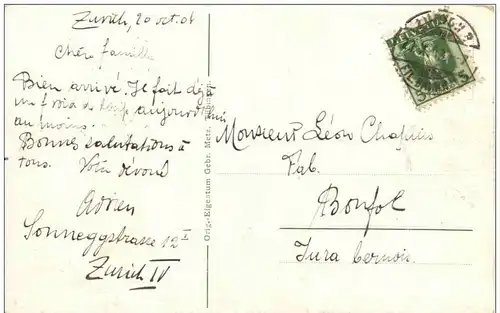 Zurich, 20 oct. 08
Chère famille
Bien arrivé. Je fait déjà
un froid de loup aujourd'hui
au moins.
Bonnes salutations à
tous. Votre dévoué
Adrien
Sonneggstrasse 12 I
Zurich IV
Orig.-Eigentum Gebr. Metz, Tübingen.
Monsieur Léon Chapuis
Fab.
Bonfol
Jura bernois.
5